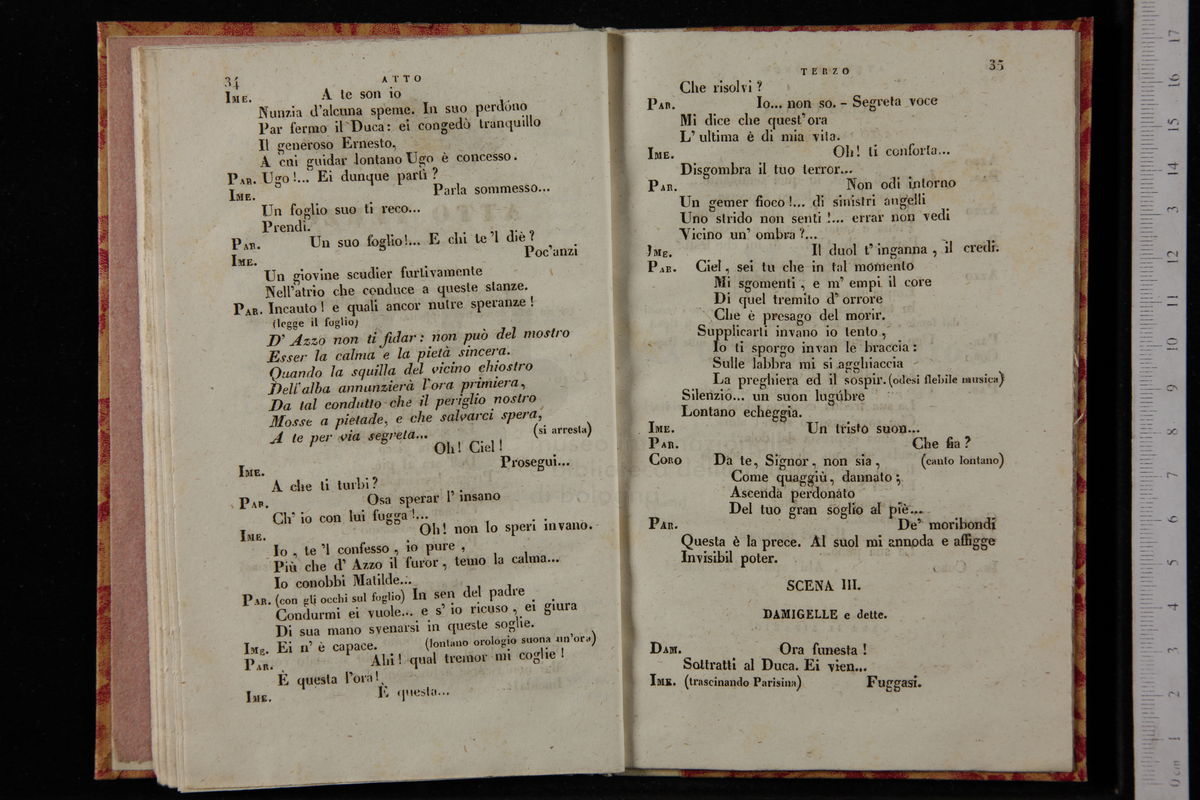 34
ATTO
IME. A te son io
Nunzia d'alcuna speme. In suo perdóno
Par fermo il Duca: ei congedò tranquillo
Il generoso Ernesto,
A cui guidar lontano Ugo è concesso.
PAR. Ugo!... Ei dunque partì?
IME. Parla sommesso...
Un foglio suo ti reco...
Prendi.
PAR. Un suo foglio!... E chi te 'l diè?
IME. Poc'anzi
Un giovine scudier furtivamente
Nell'atrio che conduce a queste stanze.
PAR. Incauto! e quali ancor nutre speranze!
(legge il foglio)
D' Azzo non ti fidar: non può del mostro
Esser la calma e la pietà sincera.
Quando la squilla del vicino chiostro
Dell'alba annunzierà l'ora primiera,
Da tal condutto che il periglio nostro
Mosse a pietade, e che salvarci spera,
A te per via segreta... (si arresta)
Oh! Ciel!
IME. Prosegui...
A che ti turbi?
PAR. Osa sperar l' insano
Ch' io con lui fugga!...
IME. Oh! non lo speri invano.
Io, te 'l confesso, io pure,
Più che d' Azzo il furor, temo la calma...
Io conobbi Matilde...
PAR. (con gli occhi sul foglio) In sen del padre
Condurmi ei vuole... e s' io ricuso, ei giura
Di sua mano svenarsi in queste soglie.
IME. Ei n' è capace. (lontano orologio suona un'ora)
PAR. Ahi! qual tremor mi coglie!
È questa l'ora!
IME. È questa...
TERZO
35
Che risolvi?
PAR. Io... non so. - Segreta voce
Mi dice che quest'ora
L' ultima è di mia vita.
IME. Oh! ti conforta...
Disgombra il tuo terror...
PAR. Non odi intorno
Un gemer fioco!... di sinistri augelli
Uno strido non senti!... errar non vedi
Vicino un' ombra?...
IME. Il duol t' inganna, il credi.
PAR. Ciel, sei tu che in tal momento
Mi sgomenti, e m' empi il core
Di quel tremito d' orrore
Che è presago del morir.
Supplicarti invano io tento,
Io ti sporgo invan le braccia:
Sulle labbra mi si agghiaccia
La preghiera ed il sospir. (odesi flebile musica)
Silenzio... un suon lugúbre
Lontano echeggia.
IME. Un tristo suon...
PAR. Che fia?
CORO Da te, Signor, non sia, (canto lontano)
Come quaggiù, dannato;
Ascenda perdonato
Del tuo gran soglio al piè...
PAR. De' moribondi
Questa è la prece. Al suol mi annoda e affigge
Invisibil poter.
SCENA III.
DAMIGELLE e dette.
DAM. Ora funesta!
Sottratti al Duca. Ei vien...
IME. (trascinando Parisina) Fuggasi.